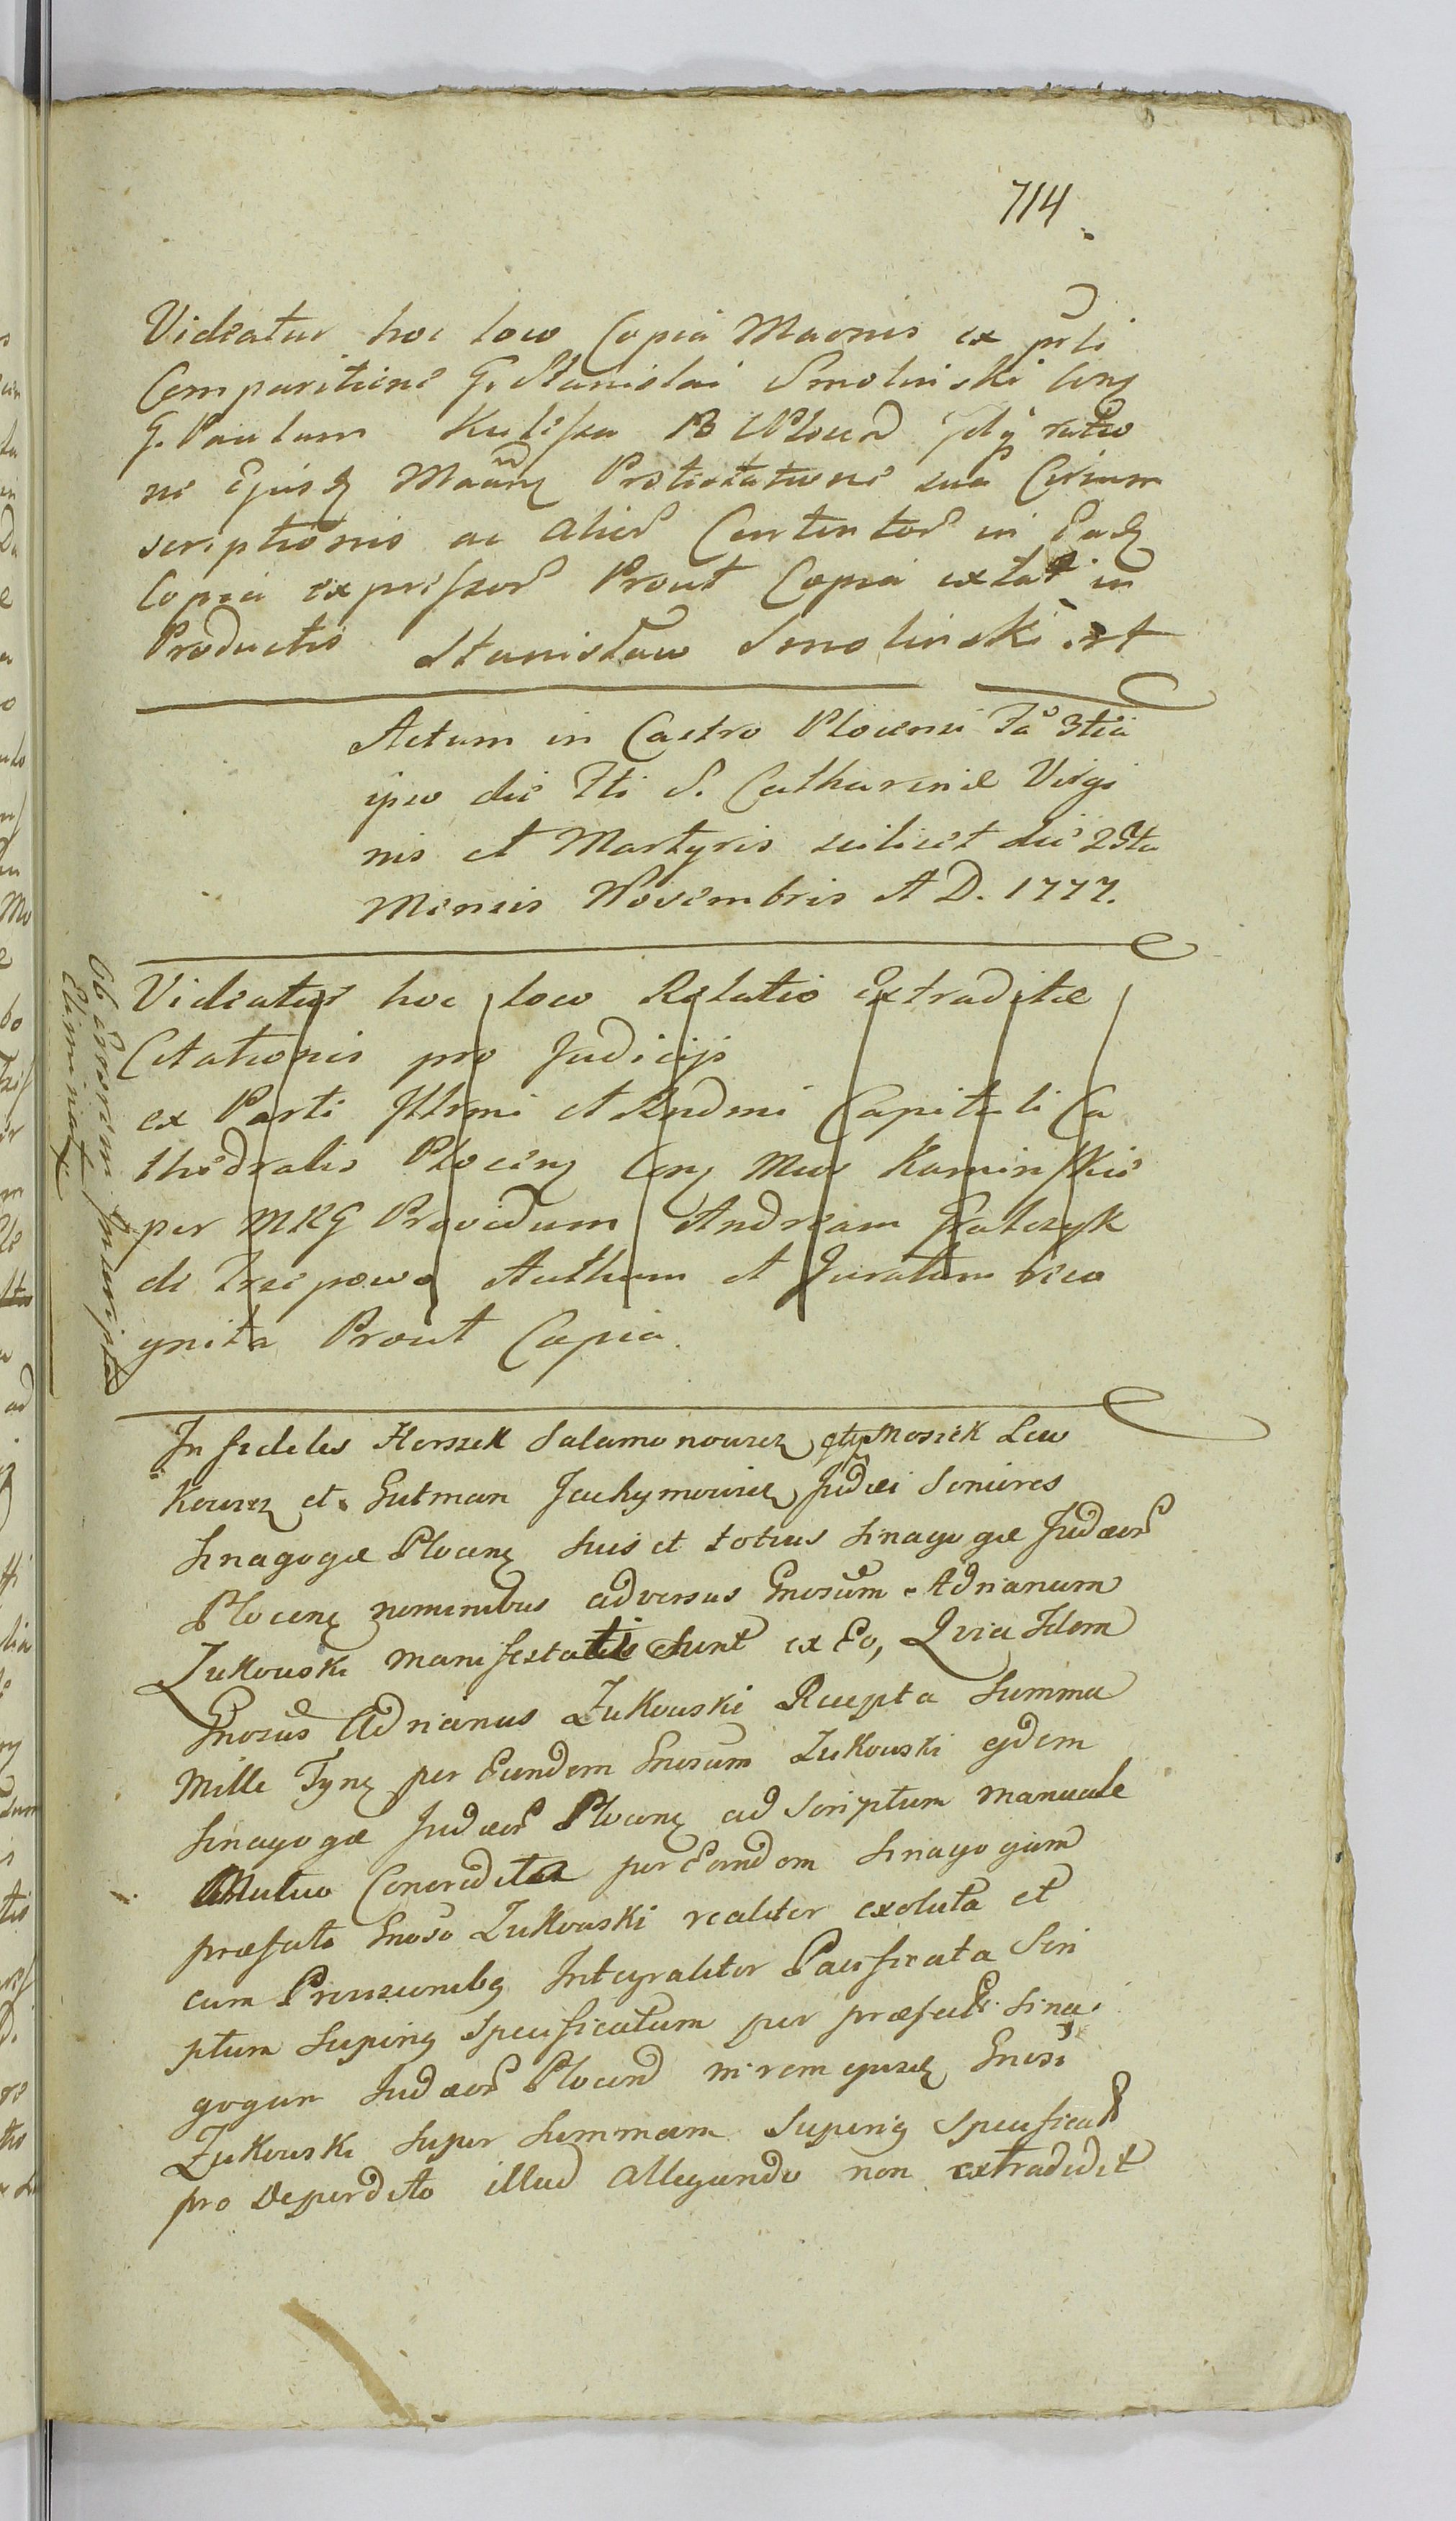 714.
Videatur hoc loco Copia Maonis ex prsti
Comparitione G. Stanislai Smolinski Conq
G. Paulum Kulesza B C Plocen
ni Ejusq Protestatione sua Circum
scriptionis ac alior Contentor in Eadq
Copia expressor Prout Copia extat in
Productis Stanisław Smolinski
Actum in Castro Plocensi Fa 3tia
ipso die Fti S. Catharinæ Virgi
nis et Martyris scilicet die 25ta
Mensis Novembris A D. 1777.
Videatur hoc loco Relatio Extraditæ
Citationis pro Judicijs
ex Parti Illrmi et Rndmi Capituli Ca
thedralis Plocenq Conq Mus Kaminskie
per MRG Providum Andream Gralczyk
di Trzepowo Authum et Juratum reco
gnita Prout Copia.
Ob Errorem Inscripta
Eliminat
Infideles Herszek Salamonowicz Mosiek Lew
Kowicz et Gutman Jachymowicz Judæi Seniores
Sinagogæ Plocenq suis et totius Sinagogæ Judæor
Plocenq nominibus adversus Gnosum Adrianum
Zukowski manifestati sunt ex Eo, Quia Idem
Gnosus Adrianus Zukowski Recepta Summa
Mille Tynq per Eundem Gnosum Zukowski ejdem
Sinagogæ Judæor Plocenq ad Scriptum manuale
Mutuo Concredita per Eandem Sinagogam
præfato Gnoso Zukowski realiter exoluta et
cum Provisionibq Integraliter Pacificata Scri
ptum Superiq Specificatum per præfat Sina
gogam Judæor Plocen in rem ejusdq Gnosi
Zukowski super Summam Superiq Specificat
pro Deperdito illud allegando non extradidit